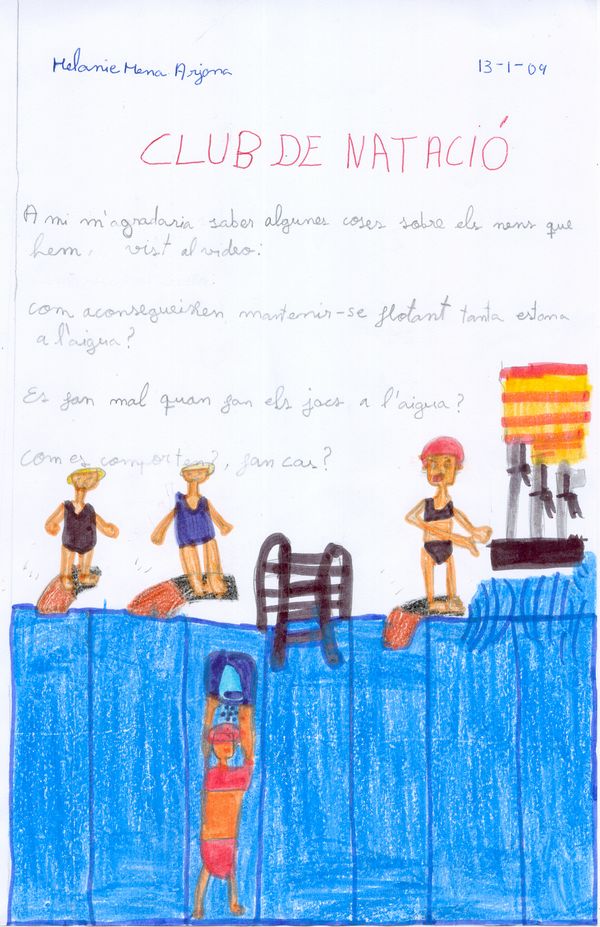 Melanie Mena Arjona
13-1-09
CLUB DE NATACIÓ
A mi m'agradaria saber algunes coses sobre els nens que
hem, vist al video:
com aconsegueixen mantenir-se flotant tanta estona
a l'aigua?
Es fan mal quan fan els jocs a l'aigua?
Com es comporten?, fan cas?